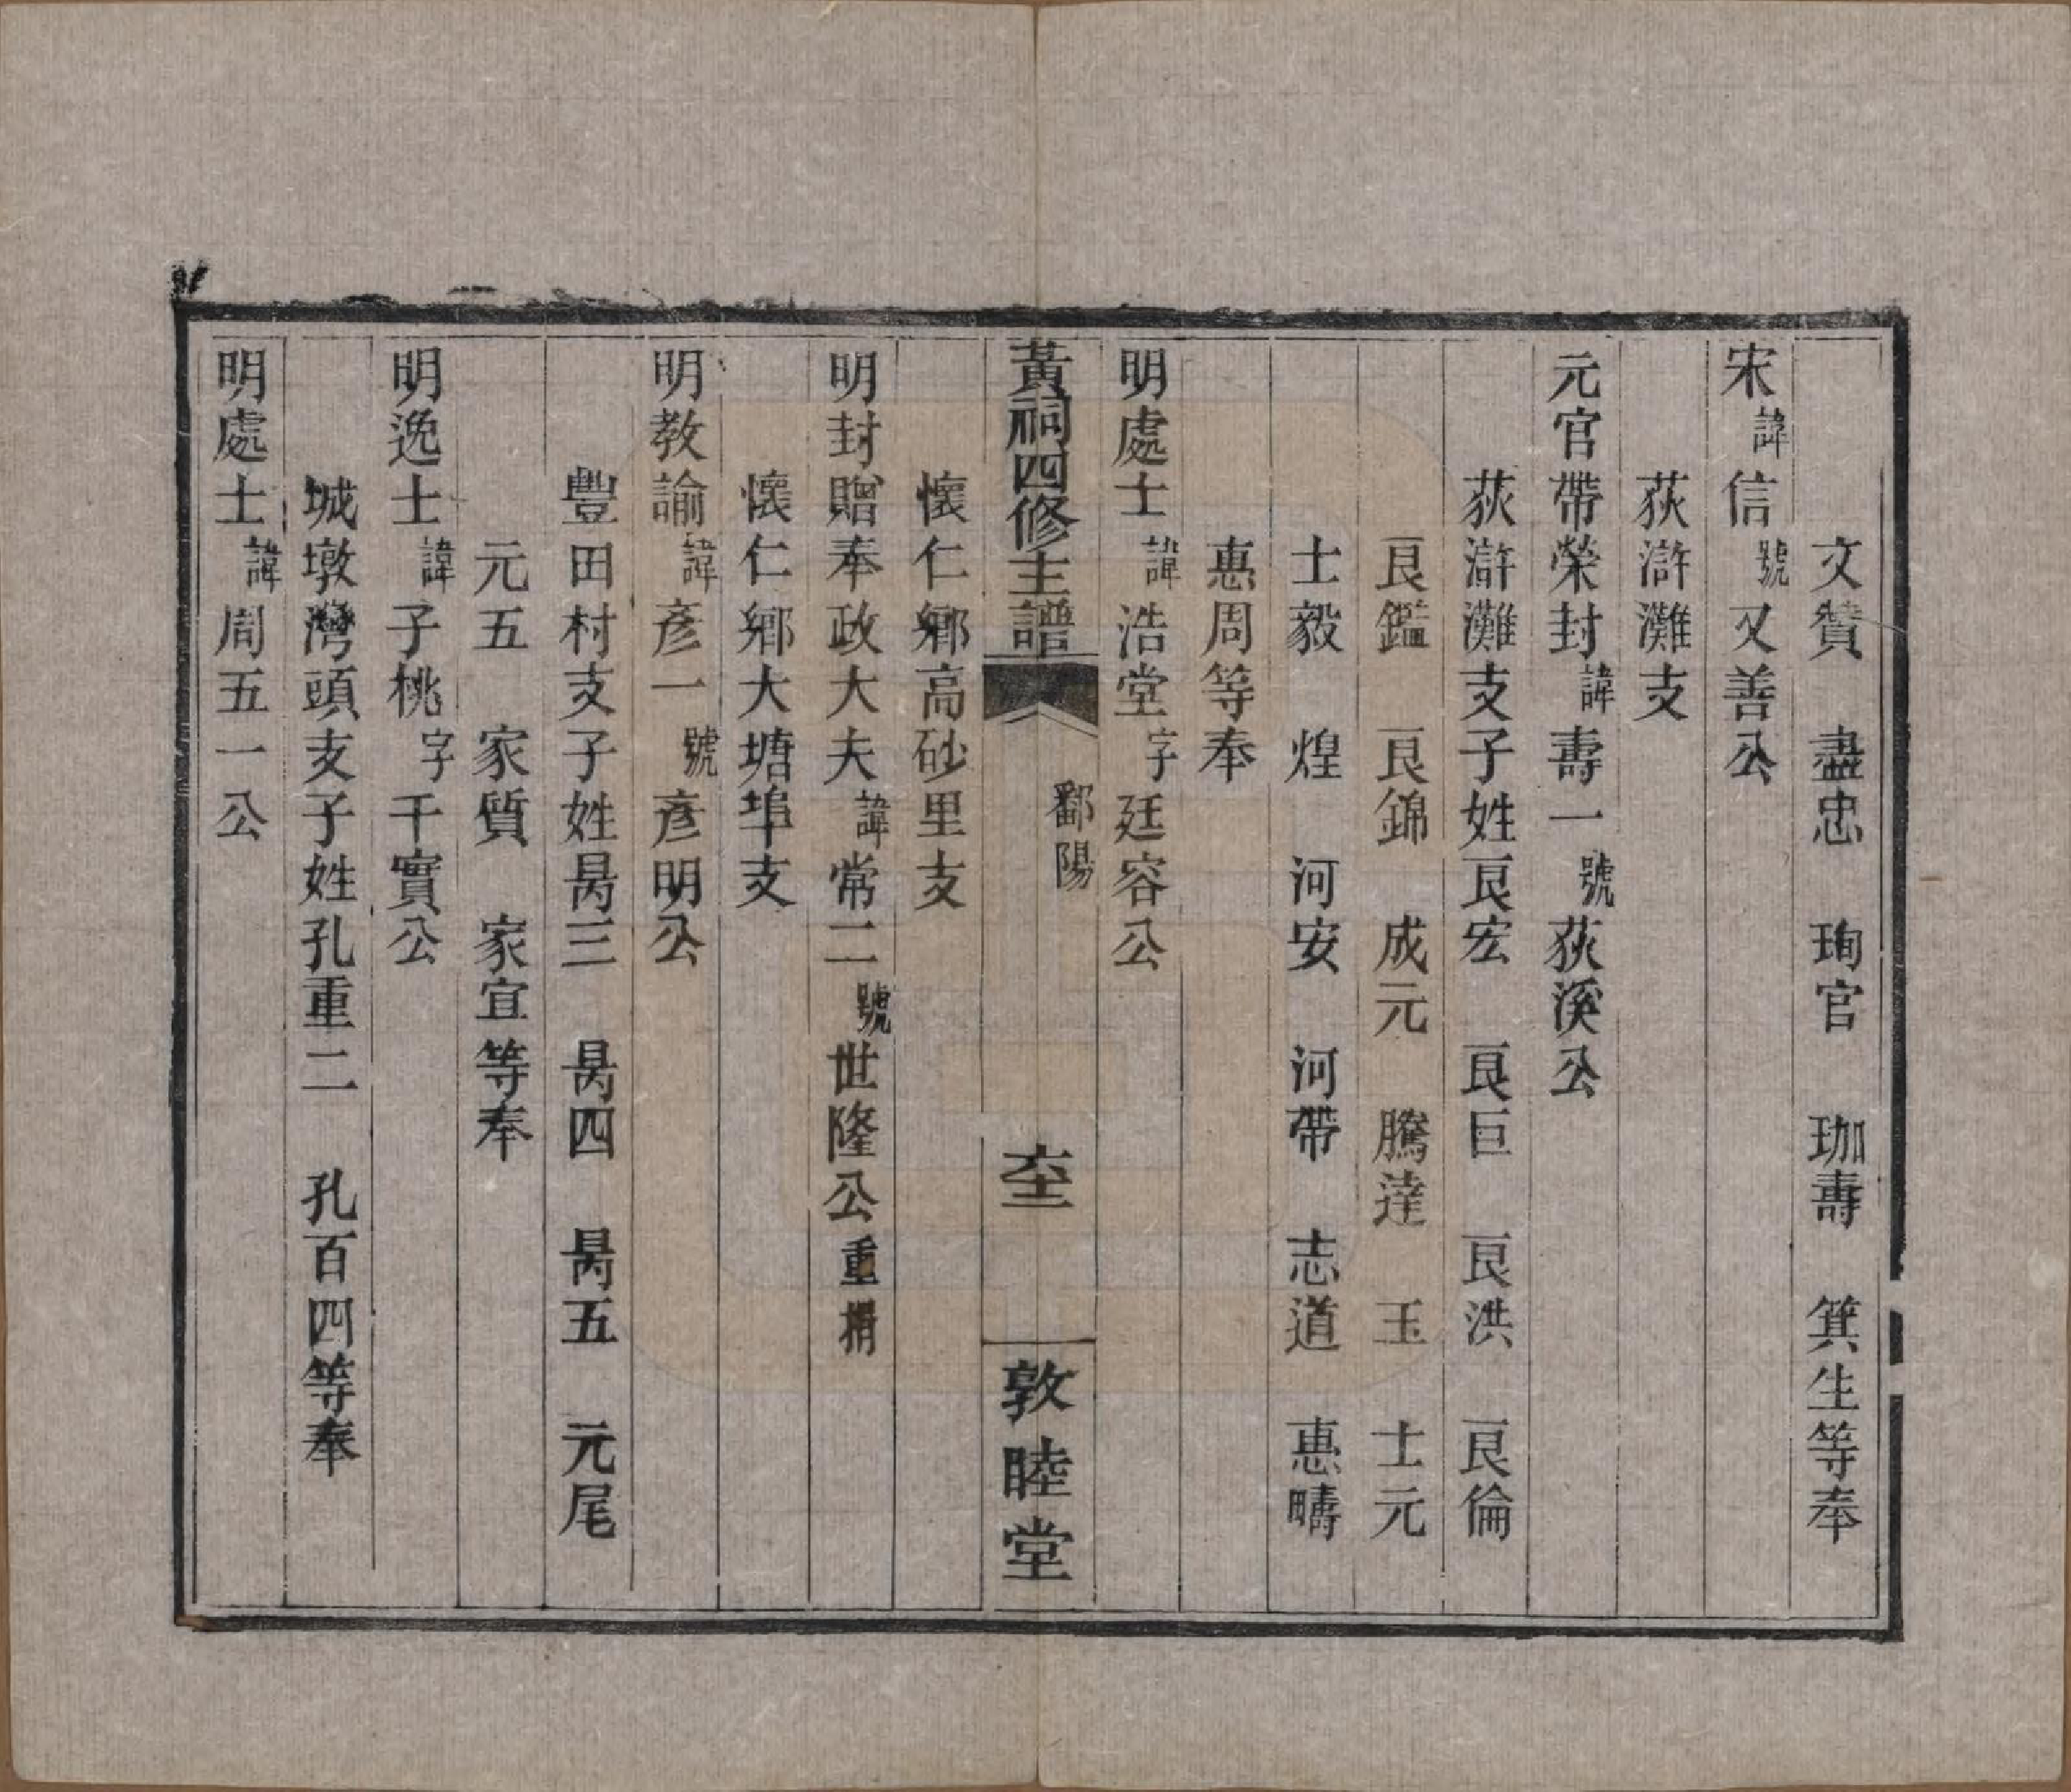 文贊　盡忠　珣官　珈壽　箕生等奉
宋諱信號又善公
荻滸灘支
元官帶榮封諱壽一號荻溪公
荻滸灘支子姓艮宏　艮巨　艮洪　艮倫
艮鑑　艮錦　成元　騰達　玉　士元
士毅　煌　河安　河帶　志道　惠疇
惠周等奉
明處士諱浩堂字廷容公
黃祠四修主譜　鄱陽　奎　敦睦堂
懷仁鄉高砂里支
明封贈奉政大夫諱常二號世隆公重捐
懷仁鄉大塘埠支
明教諭諱彥一號彥明公
豐田村支子姓昺三　昺四　昺五　元尾
元五　家質　家宜等奉
明逸士諱子桃字千實公
城墩灣頭支子姓孔重二　孔百四等奉
明處士諱周五一公